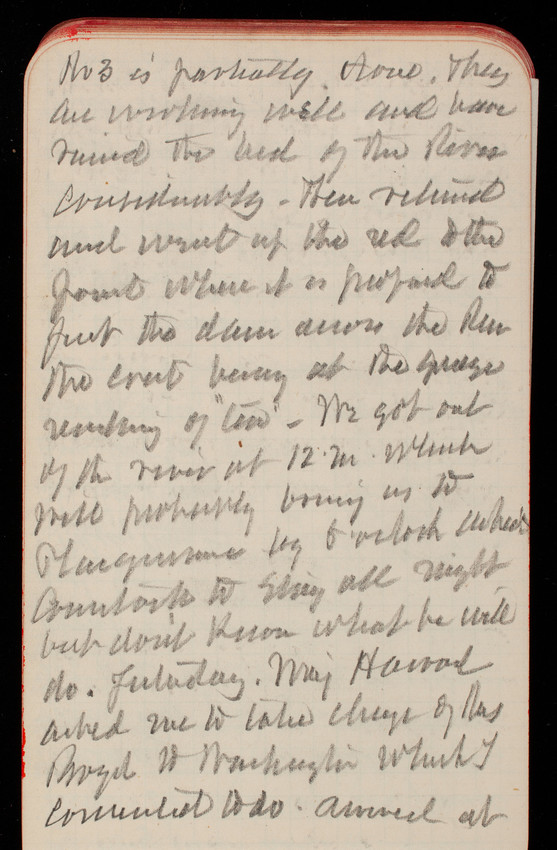 No 3 is partially done. They
are working well and have
ruined the bed of the River
considerably - Then returned
and went up the red to the
point where it is proposed to
put the dam across the River
the crest being at the guage
reading of "ten" - We got out
of the river at 12 m. which
will probably bring us to
Plaquemine by 6 o'clock
Comstock to stay all night
but don't know what he will
do. Saturday. Maj Howard
asked me to take charge of this
to Washington which I
consented to do. arrived at